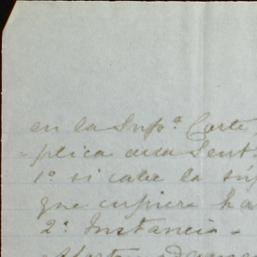 en la Supª. Corte
plica esa Sent
1º si cabe la súp
que cupiera ha
2ª Instancia -